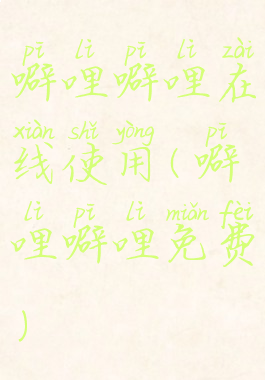 pī lǐ pī lǐ zài
噼哩噼哩在
xiàn shǐ yòng pī
线使用(噼
lǐ pī lǐ miǎn fèi
哩噼哩免费
)